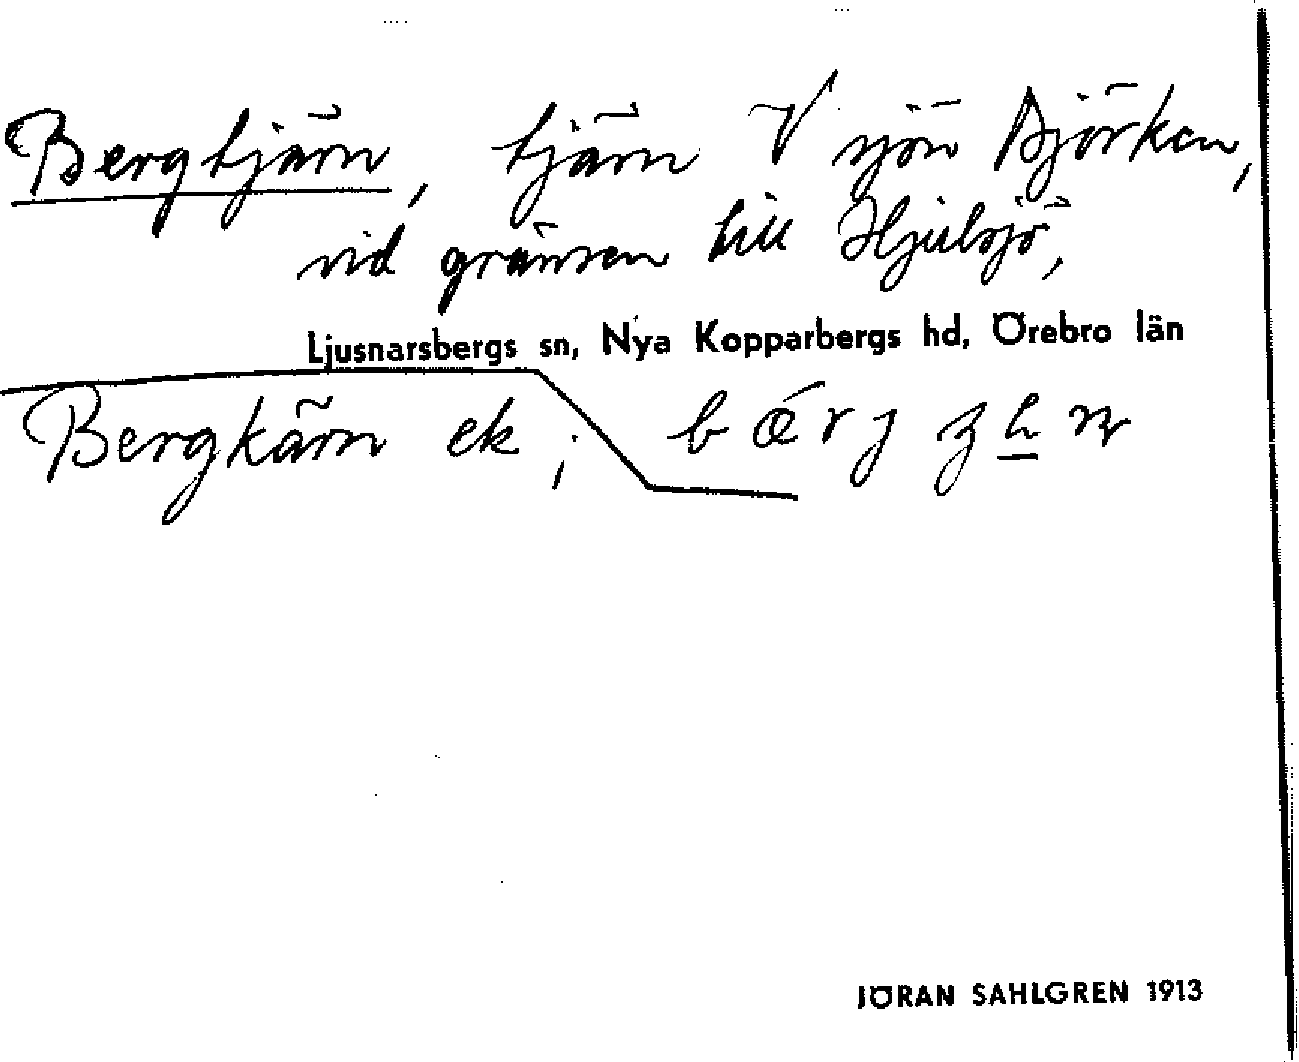 Bergtjärn, tjärn V sjön Björken,
vid gränsen till Hjulsjö,
Ljusnarsbergs sn, Nya Kopparbergs hd, Örebro län
Bergkärn ek;
JÖRAN SAHLGREN 1913